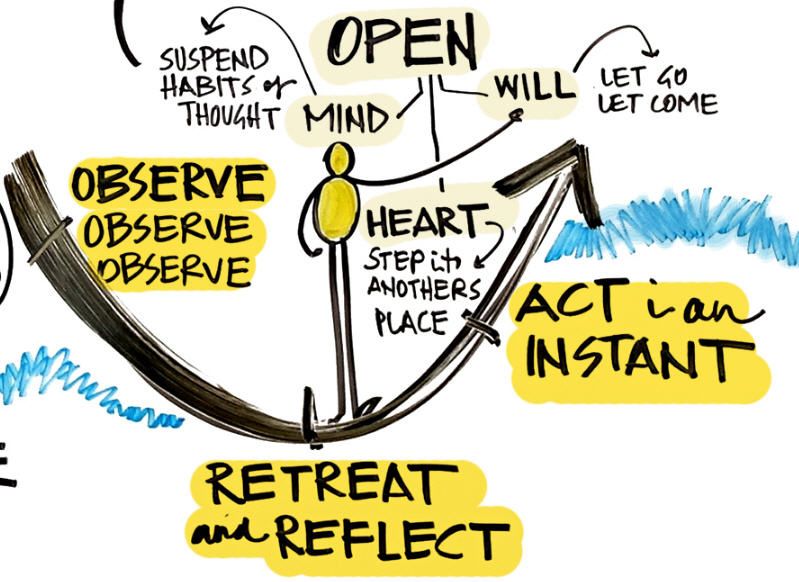 OPEN
SUSPEND
HABITS of
THOUGHT
MIND
WILL
LET GO
LET COME
OBSERVE
OBSERVE
OBSERVE
HEART
STEP into
ANOTHERS
PLACE
ACT in an
INSTANT
RETREAT
and REFLECT